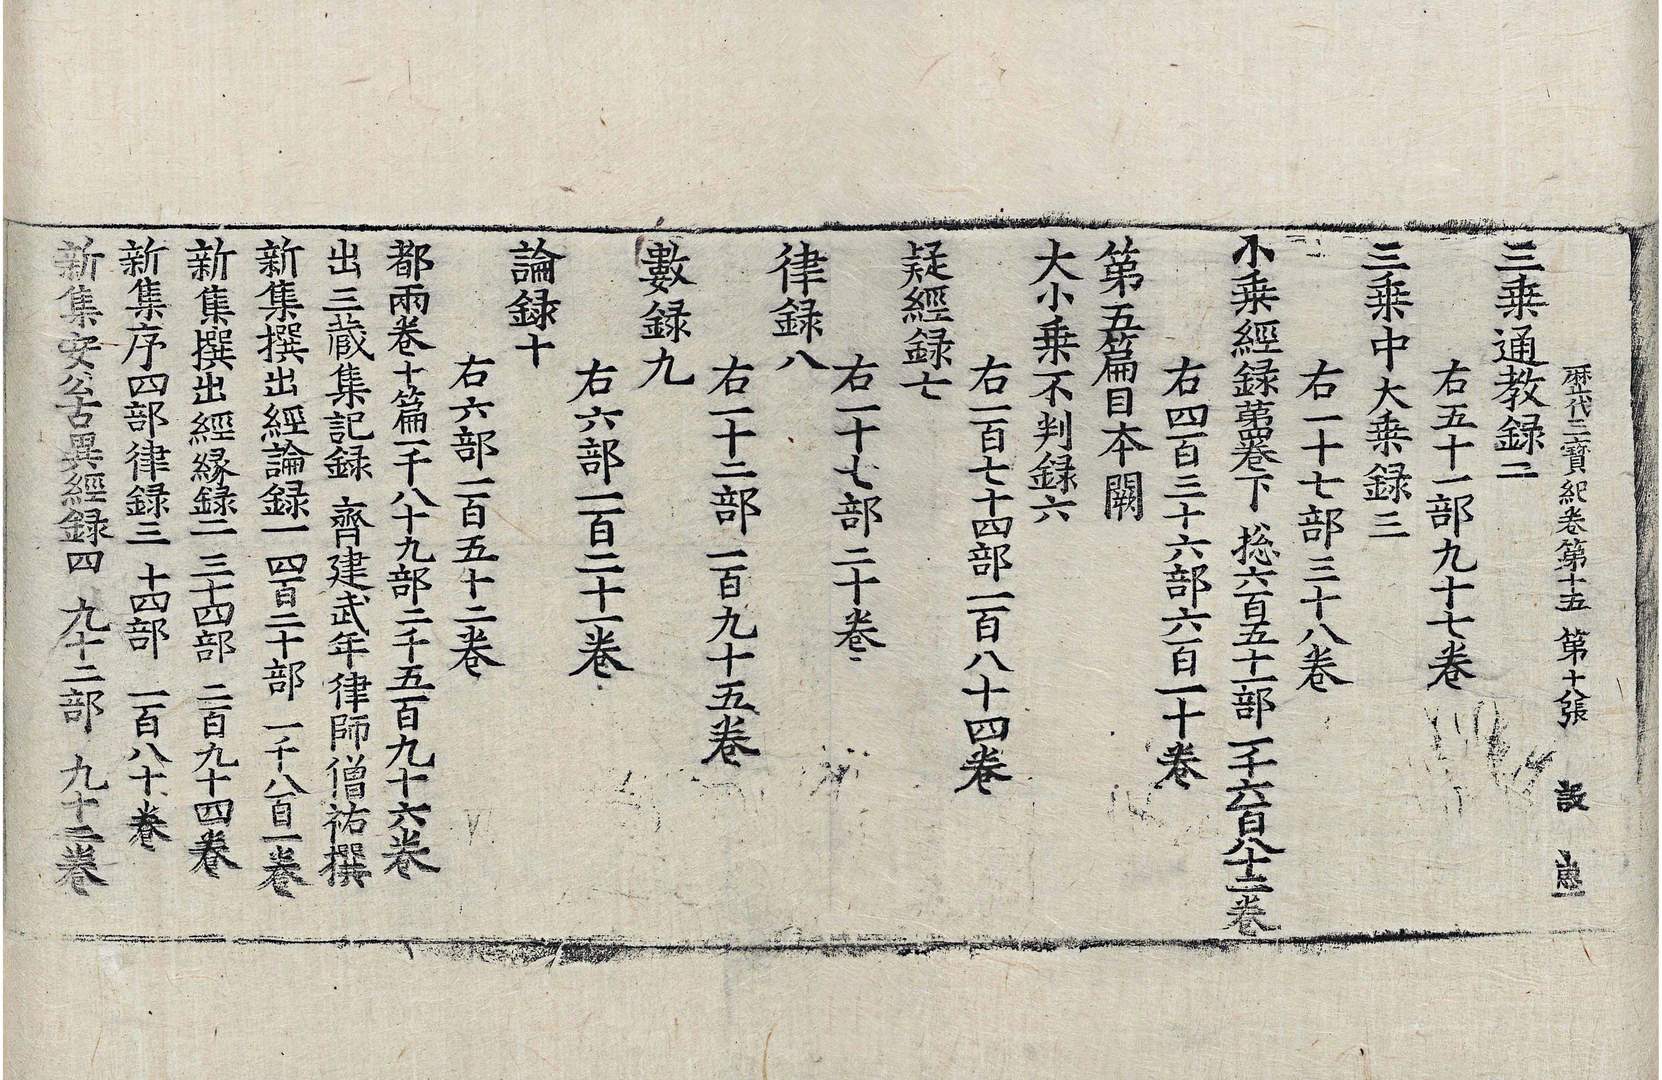 歷代三寶紀卷第十五 第十八張 設
三乗通教録二
右五十一部九十七卷
三乗中大乗録三
右一十七部三十八卷
小乗經録第四卷下 捴六百五十一部一千六百八十二卷
右四百三十六部六百一十卷
第五篇目本闕
大小乗不判録六
右一百七十四部一百八十四卷
疑經録七
右一十七部二十卷
律録八
右一十二部一百九十五卷
數録九
右六部一百二十一卷
論録十
右六部一百五十二卷
都兩卷十篇一千八十九部二千五百九十六卷
出三藏集記録 齊建武年律師僧祐撰
新集撰出經論録一 四百二十部 一千八百一卷
新集撰出經縁録二 三十四部 二百九十四卷
新集序四部律録三 十四部 一百八十卷
新集安公古異經録四 九十二部 九十二卷